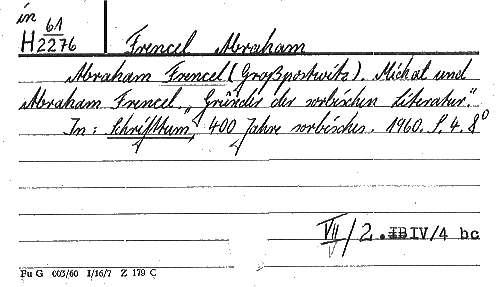 in
H 61/2276 Frencel Abraham
Abraham Frencel (Großpostwitz). Michał und
Abraham Frencel, „Gründer der sorbischen Literatur."
In: Schrifttum, 400 Jahre sorbisches. 1960. S. 4. 8°
VII/2. IBIV/4 bc
Fu G 003/60 I/16/7 Z 179 C